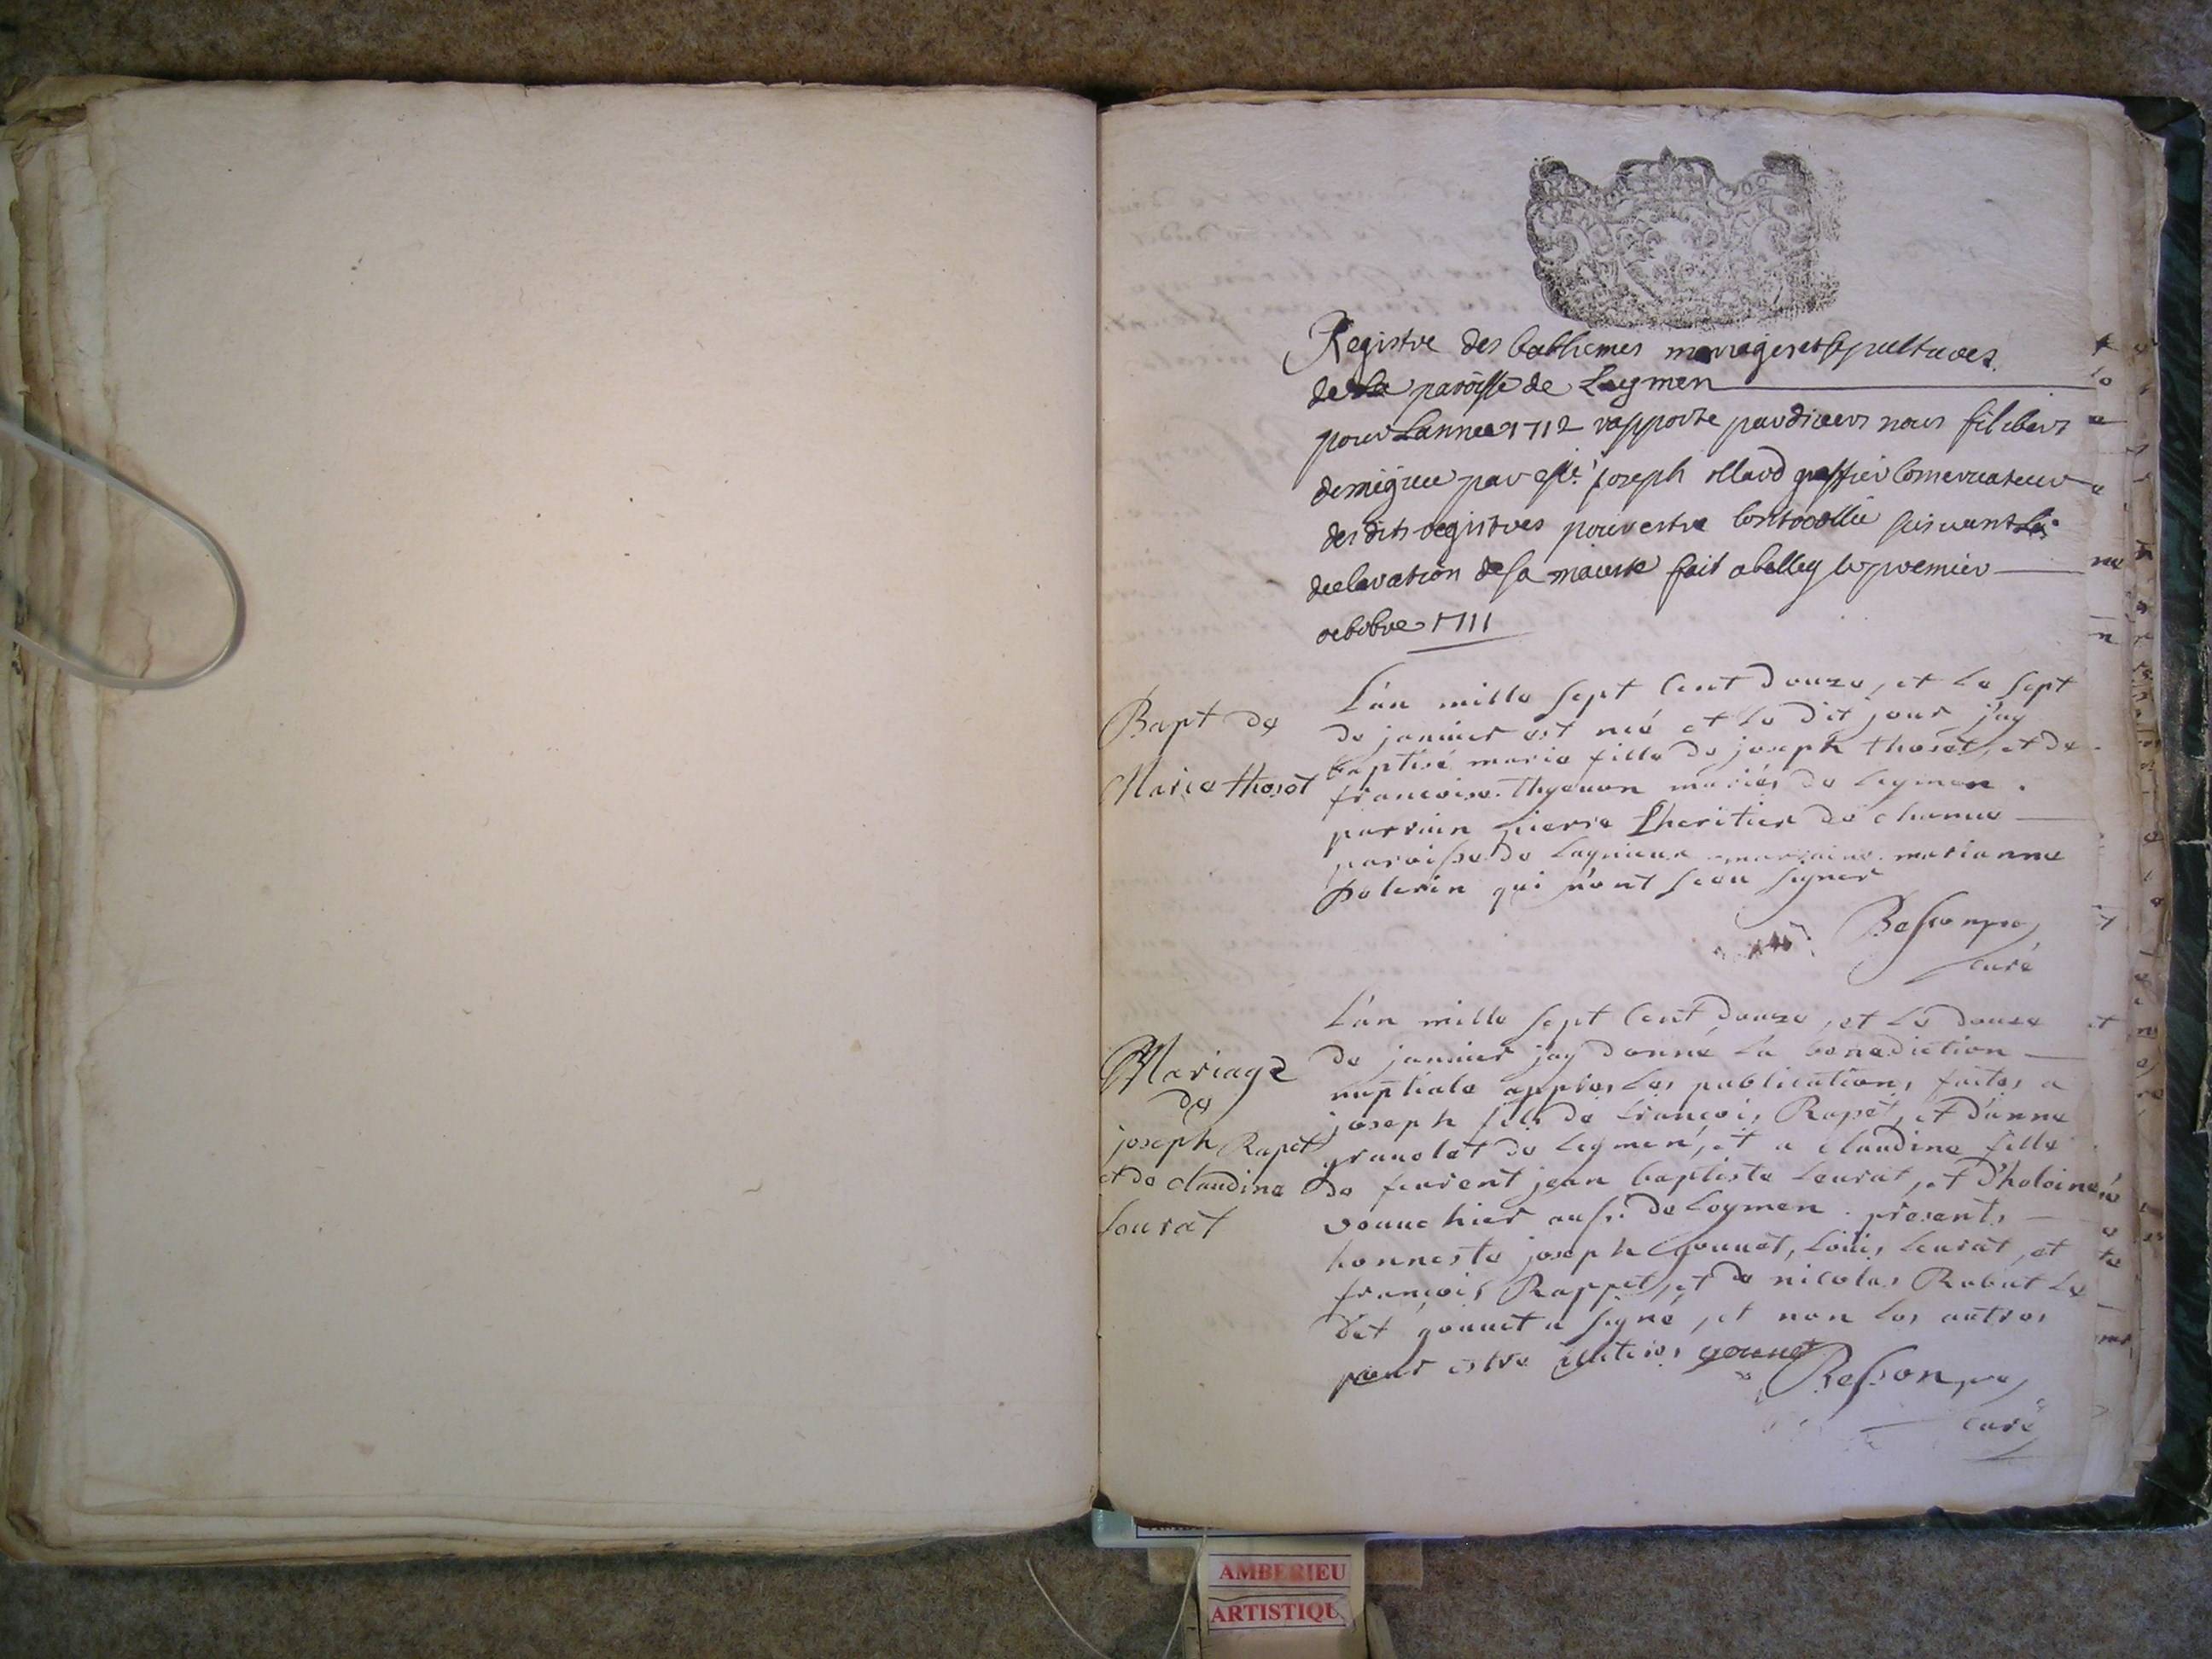 Registre des babthemes mariages et sepultures
de la paroisse de Leymen
pour Lannee 1712 rapporte pardivers nous filibert
demigieu par Mre joseph ollard greffier Conservateur
des dits registres pour estre Controollée suivant la
declaration de sa maieste fait a belley le premier
octobre 1711
Bapt de
Marie thosot
L'an mille sept Cent douze, et le sept
de janvier est née et le dit jour j'ay
baptisé marie fille de joseph thosot, et de
francoise Thyeuon mariés de Leymen.
parrain pierre Lheritier de chanue
paroisse de Lagnieux marraine marianne
polerin qui n'ont sceu signer
Besson pre
curé
Mariage
de
joseph Rapet
et de claudine
Leurat
L'an mille sept Cent douze, et le douze
de janvier j'ay donné la benediction
nuptiale appres les publications faites a
joseph fils de francois Rapet, et d'anne
granolet de Leymen, et a claudine fille
de feu jean baptiste Leurat, et d'heloine
vouuchier aussi de Loymen. presents
honneste joseph gonuet, Loüis Leurat, et
francois Rappet, et de nicolas Rubat Le
dit gonuet a signé, et non les autres
pour estre illiteres gonnet
Besson pre
curé
AMBERIEU
ARTISTIQU